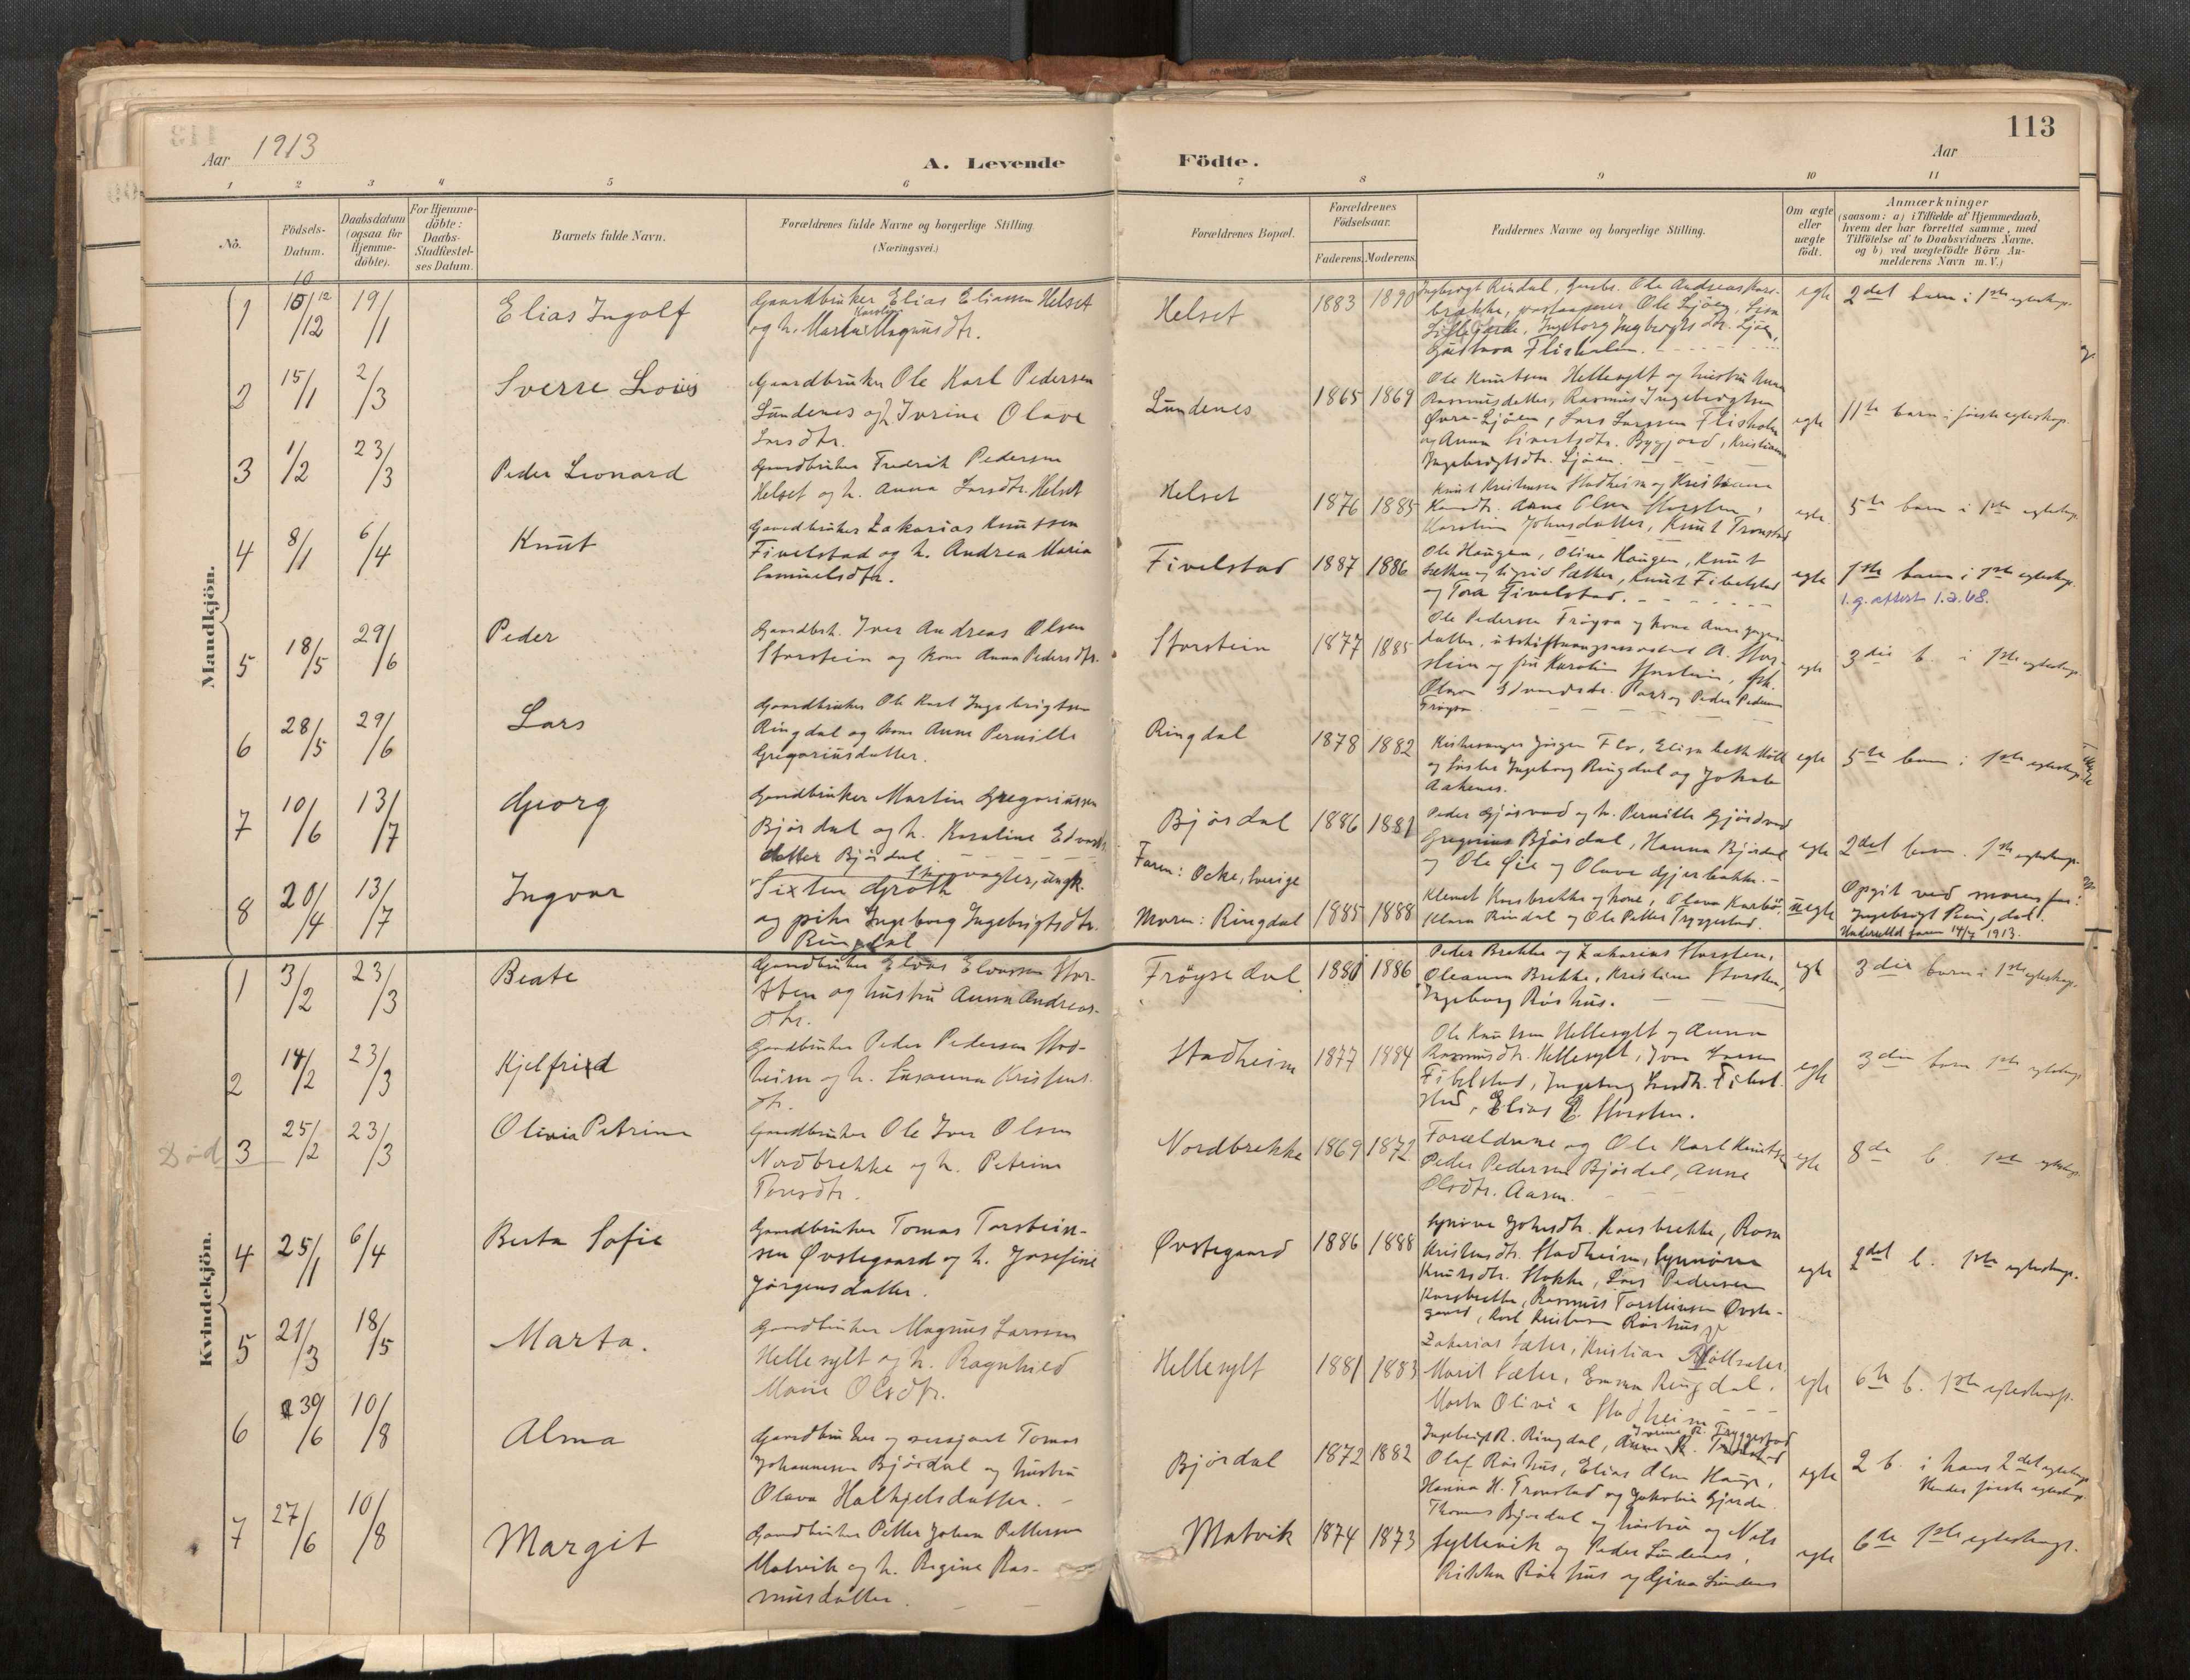 113
Aar 1913
A. Levende Födte.
Aar
1 2 3 4 5 6 7 8 9 10 11
No.
Födsels-Datum.
Daabsdatum (ogsaa for Hjemme-döbte).
For Hjemme-döbte: Daabs-Stadfæstel-ses Datum.
Barnets fulde Navn.
Forældrenes fulde Navne og borgerlige Stilling (Næringsvei.)
Forældrenes Bopæl.
Forældrenes Födselsaar.
Faderens. Moderens.
Faddernes Navne og borgerlige Stilling.
Om ægte eller uægte födt.
Anmærkninger
(saasom: a) i Tilfælde af Hjemmedaab,
hvem der har forrettet samme, med
Tilföielse af to Daabsvidners Navne,
og b) ved uægtefödte Börn An-
melderens Navn m. V.)
Mandkjön.
1 10/12 19/1 Elias Ingolf
Gaardbruker Elias Eliassen Helset
og h. Karoline Magnusdtr.
Helset 1883 1890
Ole Andreas Kors-
brekke, Ole Ljöen,
Ingeborg Ingebrigtsdtr. Ljöen,
Gustava Flisholm.
egte 2det barn i 1ste egteskap.
2 15/1 2/3 Sverre Louis
Gaardbruker Ole Karl Pedersen
Lundenes og h. Ivrine Olave
Larsdtr.
Lundenes 1865 1869
Ole Knutsen Hellesylt og hustru Anna
Rasmusdatter, Rasmus Ingebrigtsen
Øvre-Ljöen, Lars Larssen Flisholm
og Anna Sivertsdtr. Bygjord, Kristiane
Ingebrigtsdtr. Ljöen.
egte 11te barn i første egteskap.
3 1/2 23/3 Peder Leonard
Gaardbruker Fredrik Pedersen
Helset og h. Anna Larsdtr. Helset
Helset 1876 1885
Knut Kristensen Stadheim og Kristiane
Anne Olsen Storsten,
Karoline Johnsdatter, Knut Tronstad
egte 5te barn i 1ste egteskap.
4 8/1 6/4 Knut
Gaardbruker Zakarias Knutssen
Fivelstad og h. Andrea Maria
Samuelsdtr.
Fivelstad 1887 1886
Ole Haugen, Oline Haugen, Knut
Sæther og Sigrid Sætter, Knut Fibelstad
og Tora Fivelstad.
egte 1ste barn i 1ste egteskap.
1.g. attest 1.2.68.
5 18/5 29/6 Peder
Gaardbr. Iver Andreas Olsen
Storstein og kone Anna Pedersdtr.
Storstein 1877 1885
Ole Pedersen Fröysa og kone Anne
datter, utskiftningsassistent A. Stor-
stein og fru Karoline Storstein,
Olava Edvardsdtr. og Peder Pedersen
Fröysa
egte 3die b. i 1ste egteskap.
6 28/5 29/6 Lars
Gaardbruker Ole Karl Ingebrigtsen
Ringdal og kone Anne Pernille
Gregoriusdatter.
Ringdal 1878 1882
Kirkesanger Jörgen Flo, Elisabeth
og søster Ingeborg Ringdal og Jakob
Aakenes.
egte 5te barn i 1ste egteskap.
7 10/6 13/7 Georg
Gaardbruker Martin Gregoriussen
Bjørdal og h. Karoline Edvards-
datter Bjørdal
Bjørdal 1886 1881
Peder Gjørvad og h. Pernille Gjørvad
Gregorius Bjørdal, Hanna Bjørdal
og Ole Øie og Olava Gjerbakke.
egte 2det barn 1ste egteskap.
8 20/4 13/7 Ingvar
Sixten Groth Skogvogter, ungk.
og pike Ingeborg Ingebrigtsdtr.
Ringdal
Faren: Ocke, Sverige
Moren: Ringdal 1885 1888
Klemet Korsbrekke og kone, Olava Karbø,
Klara Rindal og Ole Petter Tryggestad.
uegte
Opgit ved morens far:
Ingebrigt Ringdal.
Underrettet faren 14/7 1913.
Kvindekjön.
1 3/2 23/3 Beate
Gaardbruker Elias Eliassen Stor-
sten og hustru Anna Andreas-
dtr.
Frøysedal 1881 1886
Peder Brekke og Zakarias Storsten,
Oleanna Brekke, Kristiane Storsten,
Ingeborg Røshus.
egte 3die barn i 1ste egteskap.
2 14/2 23/3 Kjelfrid
Gaardbruker Peder Pedersen Stad-
heim og h. Susanna Kristens-
dtr.
Stadheim 1877 1884
Ole Knutsen Hellesylt og Anna
Rasmusdtr. Hellesylt, Iver Larsen
Fibelstad, Ingeborg Larsdtr. Fibel-
stad, Elias E. Storsten.
egte 3die barn 1ste egteskap
Død 3 25/2 23/3 Olivia Petrine
Gaardbruker Ole Iver Olsen
Nordbrekke og h. Petrine
Peersdtr.
Nordbrekke 1869 1872
Forældrene og Ole Karl Knutsen
Peder Pedersen Bjørdal, Anne
Olsdtr. Aasen.
egte 8de b. 1ste egteskap.
4 25/1 6/4 Berta Sofie
Gaardbruker Tomas Torstein-
sen Øvstegaard og h. Josefine
Jørgensdatter.
Øvstegaard 1886 1888
Synnve Johsdtr. Korsbrekke, Rasm
Kristensdtr. Stadheim, Synnøve
Knutsdtr. Stokke, Lars Pedersen
Korsbrekke, Rasmus Torsteinsen Øvste-
gaard, Karl Kristensen Røshus
egte 2det b. 1ste egteskap.
5 21/3 18/5 Marta.
Gaardbruker Magnus Larssen
Hellesylt og h. Ragnhild
Marie Olsdtr.
Hellesylt 1881 1883
Zakarias Sæter, Kristian
Marit Sæter, Emma Ringdal,
Marta Olivia Stadheim
egte 6te b. 1ste egteskap.
6 30/6 10/8 Alma
Gaardbruker og sersjant Tomas
Johannesen Bjørdal og hustru
Olava Halkjelsdatter.
Bjørdal 1872 1882
Ingebrigt R. Ringdal, Ivrine R. Tryggestad
Olaf Røshus, Elias Olsen Hauge,
Hanna H. Tronstad og Jakobia Gjerde.
egte 2 b. i hans 2det egteskap
Hendes første egteskap.
7 27/6 10/8 Margit
Gaardbruker Petter Johan Pettersen
Matvik og h. Regine Ras-
musdatter.
Matvik 1874 1873
Thomas Bjørdal og hustru og Nils
Syltevik og Peder Lundenes,
Rikka Røshus og Gina Lundenes
egte 6te 1ste egteskap.